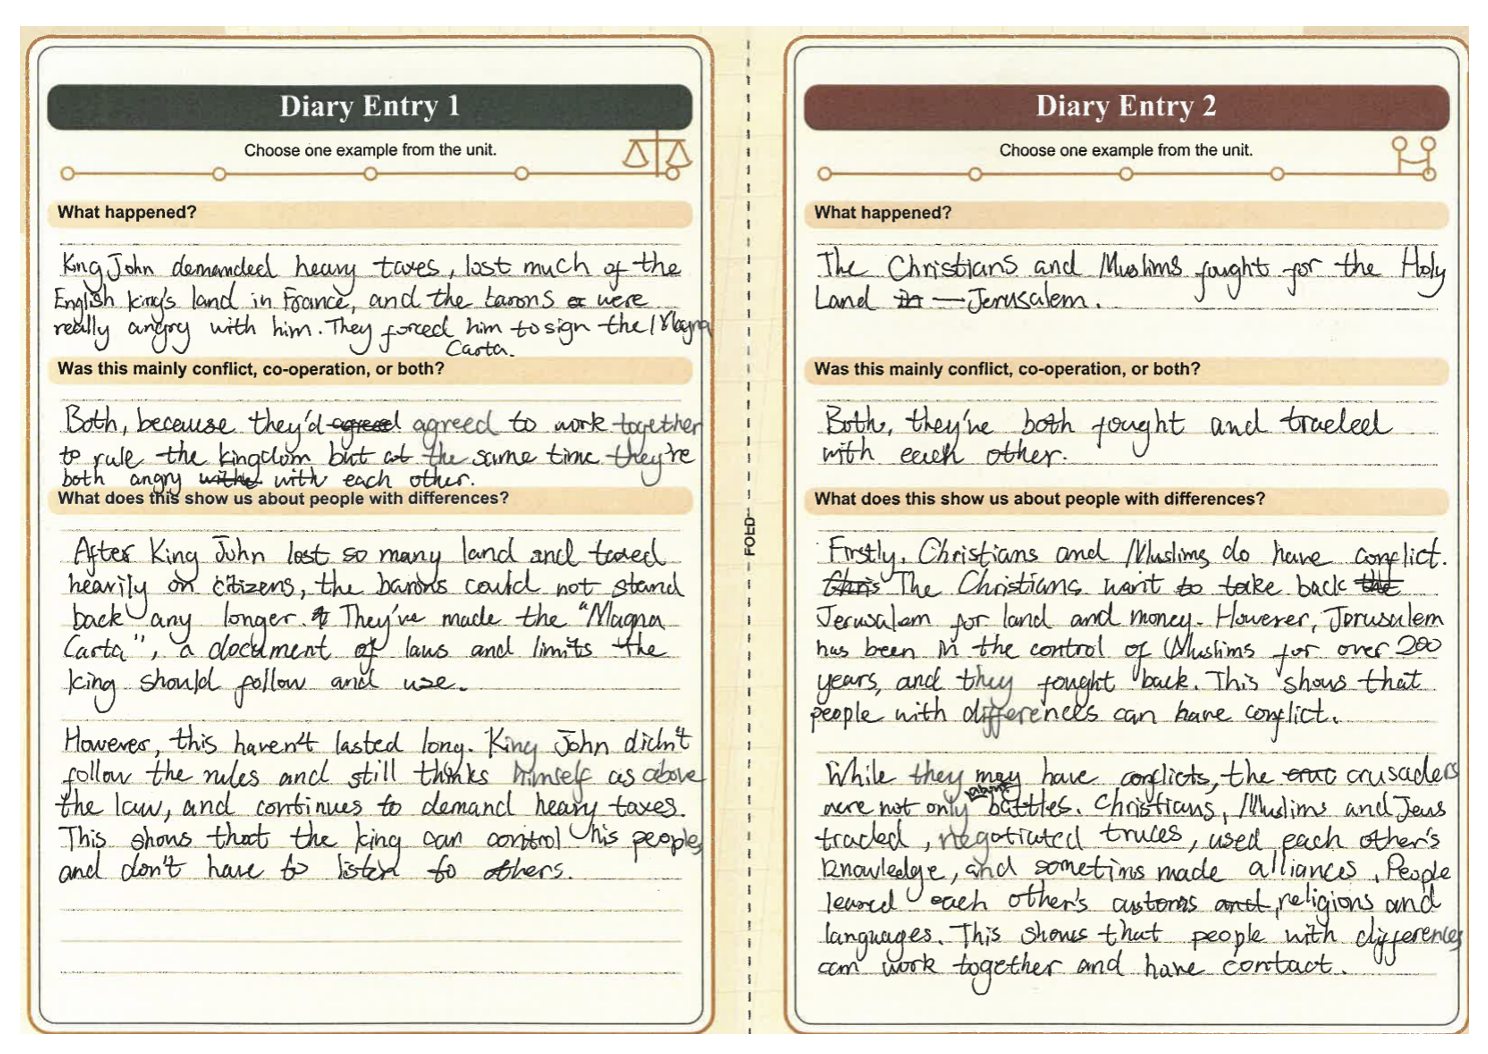 Diary Entry 1
Choose one example from the unit.
What happened?
King John demanded heavy taxes, lost much of the
English king's land in France, and the barons were
really angry with him. They forced him to sign the Magna
Carta.
Was this mainly conflict, co-operation, or both?
Both, because they'd agreed agreed to work together
to rule the kingdom but at the same time they're
both angry with each other.
What does this show us about people with differences?
After King John lost so many land and taxed
heavily on citizens, the barons could not stand
back any longer. They've made the "Magna
Carta", a document of laws and limits the
king should follow and use.
However, this haven't lasted long. King John didn't
follow the rules and still thinks himself as above
the law, and continues to demand heavy taxes.
This shows that the king can control his people,
and don't have to listen to others.
FOLD
Diary Entry 2
Choose one example from the unit.
What happened?
The Christians and Muslims fought for the Holy
Land in — Jerusalem.
Was this mainly conflict, co-operation, or both?
Both, they've both fought and traded
with each other.
What does this show us about people with differences?
Firstly, Christians and Muslims do have conflict.
Chris The Christians want to take back the
Jerusalem for land and money. However, Jerusalem
has been in the control of Muslims for over 200
years, and they fought back. This shows that
people with differences can have conflict.
While they may have conflicts, the crusaders
were not only battles. Christians, Muslims and Jews
traded, negotiated truces, used each other's
knowledge, and sometims made alliances. People
learned each other's customs and, religions and
languages. This shows that people with differences
can work together and have contact.